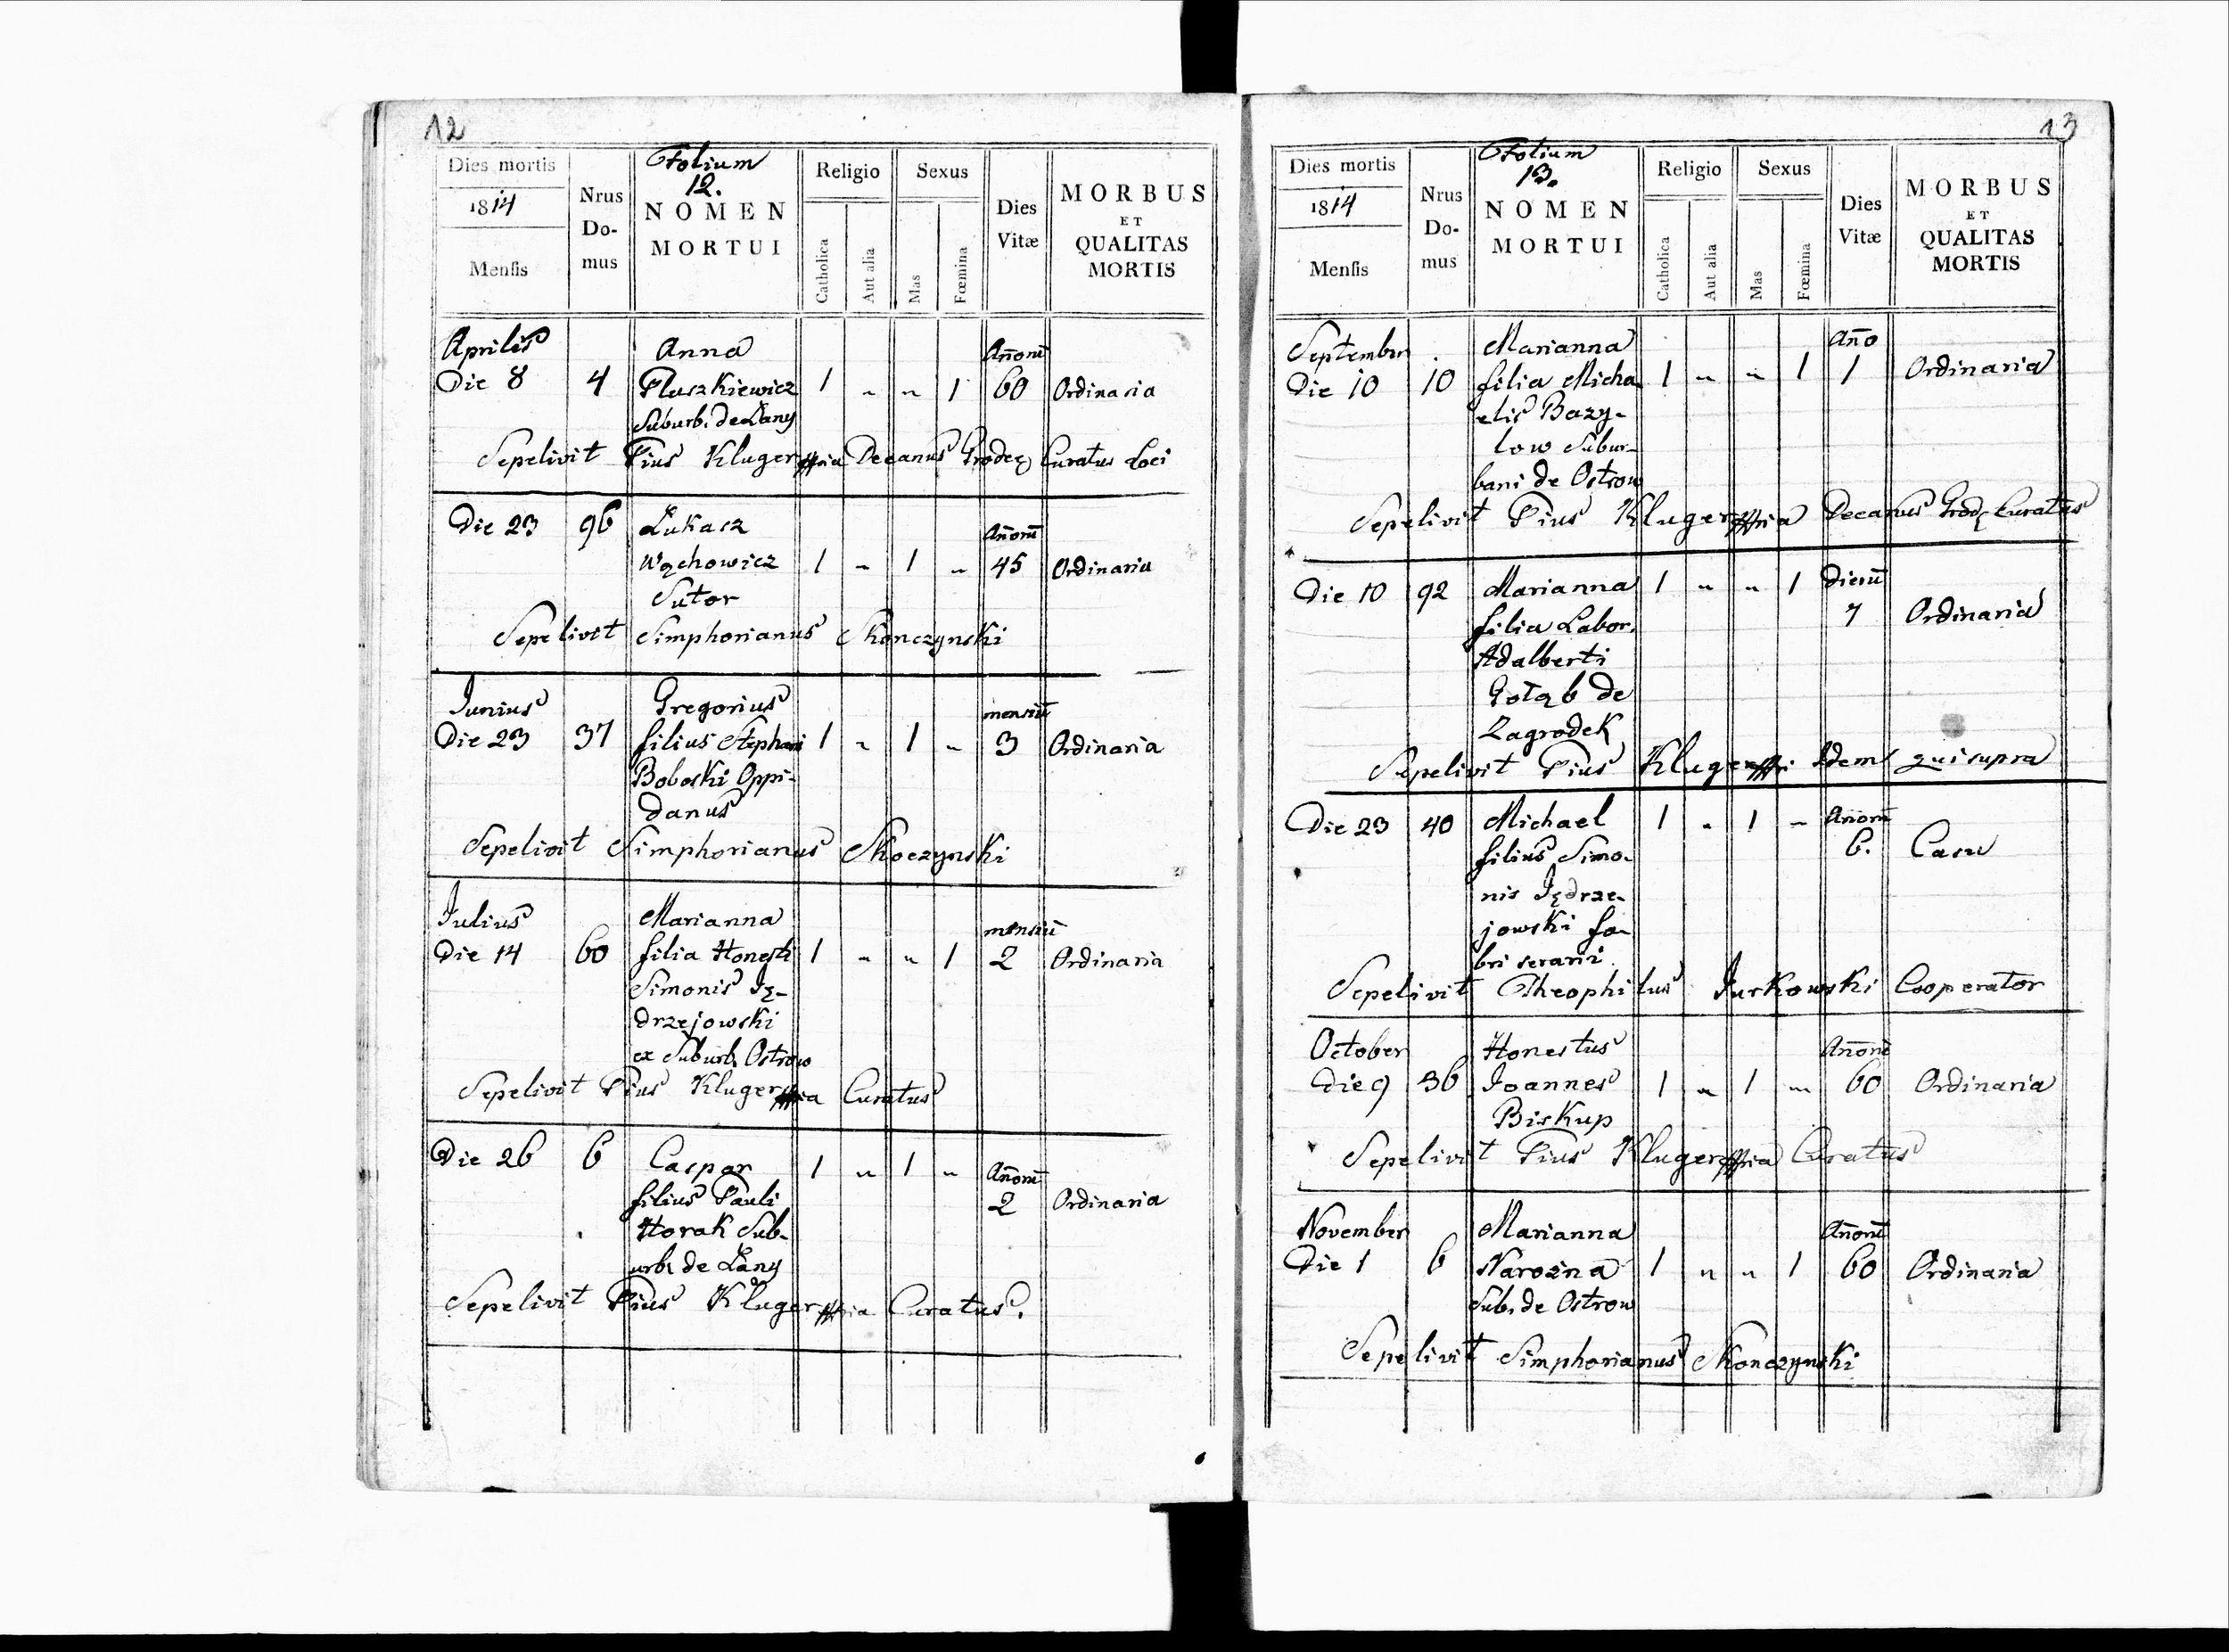 12
Folium
12.
Dies mortis
1814
Menſis
Nrus
Do-
mus
NOMEN
MORTUI
Religio
Catholica
Aut alia
Sexus
Mas
Fœmina
Dies
Vitæ
MORBUS
ET
QUALITAS
MORTIS
Aprilis Anna Añorũ
Die 8 4 Pluszkiewicz 1 „ „ 1 60 Ordinaria
Suburb. de Łany
Sepelivit Pius Kluger Decanus Grodec Curatus Loci
Die 23 96 Łukasz Añorũ
Wąchowicz 1 „ 1 „ 45 Ordinaria
Sutor
Sepelivit Simphorianus Skonczynski
Junius Gregorius mensiũ
Die 23 37 filius Stephani 1 „ 1 „ 3 Ordinaria
Boboski Oppi-
danus
Sepelivit Simphorianus Skoczynski
Julius Marianna mensiũ
Die 14 60 filia Honesti 1 „ „ 1 2 Ordinaria
Simonis Ję-
drzejowski
ex Suburb. Ostrow
Sepelivit Pius Kluger Curatus
Die 26 6 Caspar 1 „ 1 „ Añorũ
filius Pauli 2 Ordinaria
Horak Sub-
urb. de Łany
Sepelivit Pius Kluger Curatus.
13
Folium
13.
Dies mortis
1814
Menſis
Nrus
Do-
mus
NOMEN
MORTUI
Religio
Catholica
Aut alia
Sexus
Mas
Fœmina
Dies
Vitæ
MORBUS
ET
QUALITAS
MORTIS
September Marianna Año
Die 10 10 filia Micha 1 „ „ 1 1 Ordinaria
elis Bazy-
low Subur-
bani de Ostrow
Sepelivit Pius Kluger Decanus Grod. Curatus
Die 10 92 Marianna 1 „ „ 1 Dierũ
filia Labor. 7 Ordinaria
Adalberti
Gołąb de
Zagrodek
Sepelivit Pius Kluger Idem qui supra
Die 23 40 Michael 1 „ 1 „ Añorũ
filius Simo- 6. Casu
nis Jędrze-
jowski fa-
bri serarii
Sepelivit Theophilus Jurkowski Cooperator
October Honestus Añorũ
Die 9 36 Joannes 1 „ 1 „ 60 Ordinaria
Biskup
Sepelivit Pius Kluger Curatus
November Marianna Añorũ
Die 1 6 Narozna 1 „ „ 1 60 Ordinaria
Sub. de Ostrow
Sepelivit Simphorianus Skonczynski